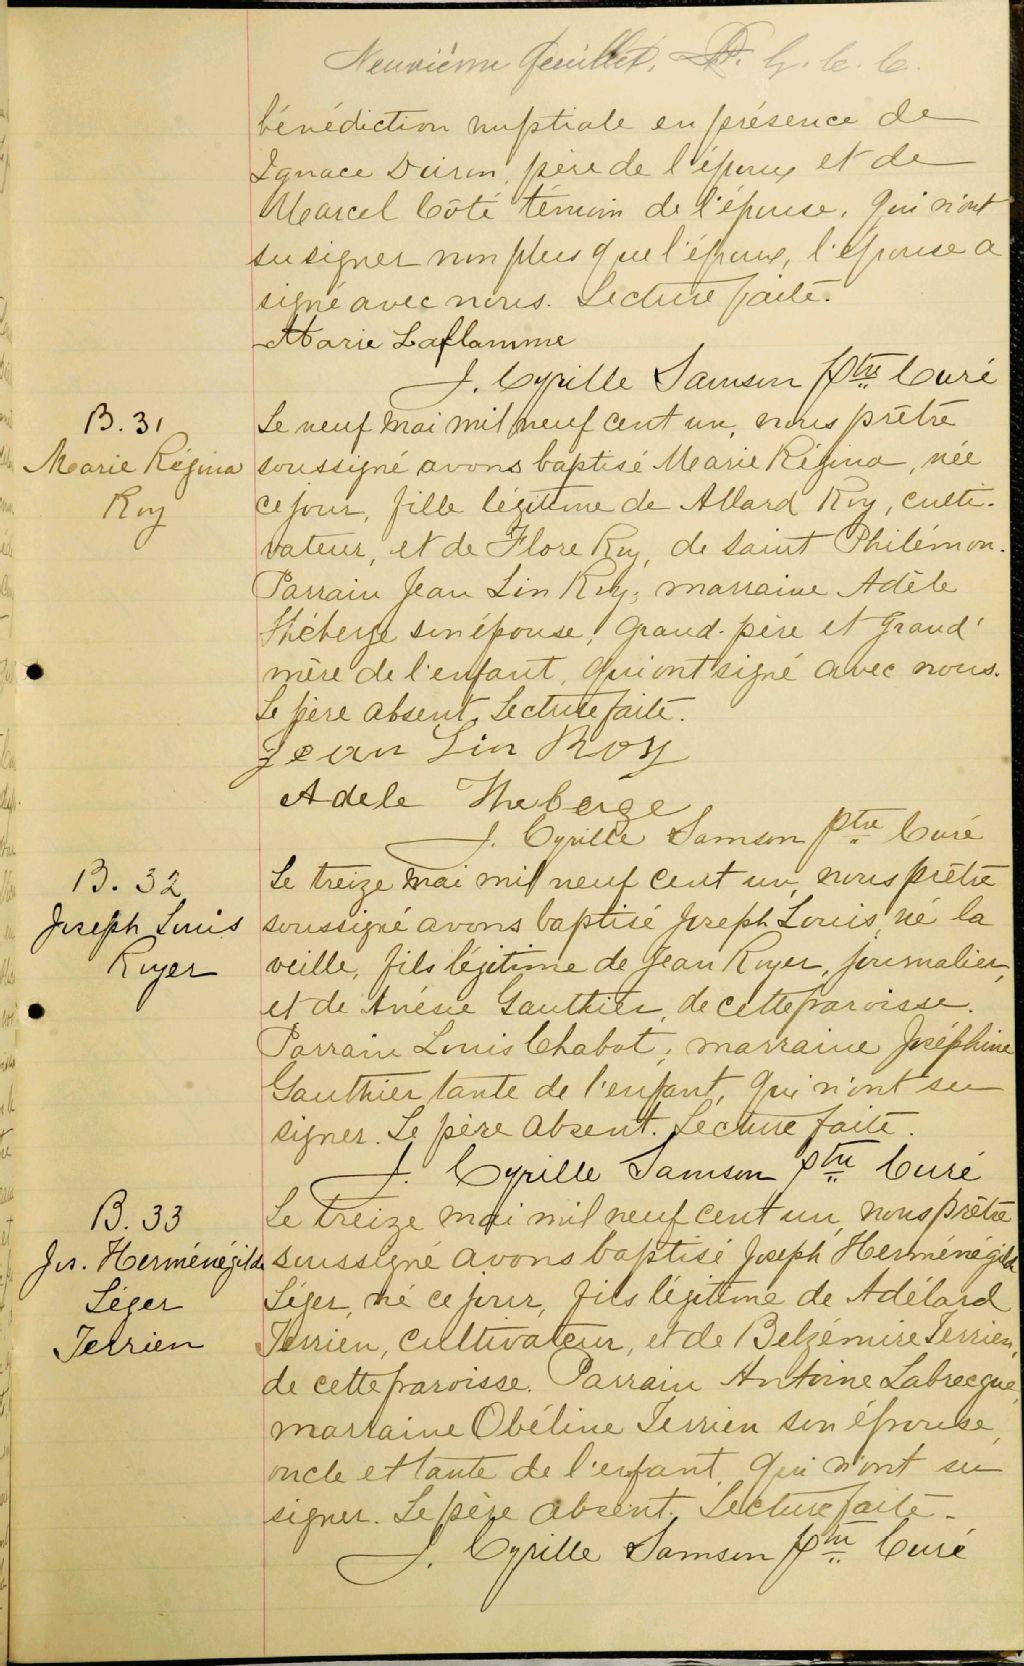 Neuvième feuillet.
bénédiction nuptiale en présence de
Ignace père de l'époux et de
Marcel Côté témoin de l'épouse, qui n'ont
su signer non plus que l'époux, l'épouse a
signé avec nous. Lecture faite.
Marie Laflamme
J. Cyrille Samson Ptre Curé
B. 31
Marie Régina
Roy
Le neuf mai mil neuf cent un, nous prêtre
soussigné avons baptisé Marie Régina, née
ce jour, fille légitime de Allard Roy, culti-
vateur, et de Flore Roy, de Saint Philémon.
Parrain Jean Lin Roy; marraine Adèle
Théberge son épouse, grand-père et grand'
mère de l'enfant, qui ont signé avec nous.
Le père absent. Lecture faite.
Jean Lin Roy
Adele Theberge
J. Cyrille Samson ptre Curé
B. 32
Joseph Louis
Royer
Le treize mai mil neuf cent un, nous prêtre
soussigné avons baptisé Joseph Louis, né la
veille, fils légitime de Jean Royer, journalier,
et de Anésie Gauthier, de cette paroisse.
Parrain Louis Chabot; marraine Joséphine
Gauthier tante de l'enfant, qui n'ont su
signer. Le père absent. Lecture faite.
J. Cyrille Samson ptre Curé
B. 33
Jos. Herménégilde
Léger
Terrien
Le treize mai mil neuf cent un, nous prêtre
soussigné avons baptisé Joseph Herménégilde
Léger, né ce jour, fils légitime de Adélard
Terrien, cultivateur, et de Belzémire Terrien,
de cette paroisse. Parrain Antoine Labrecque,
marraine Obéline Terrien son épouse,
oncle et tante de l'enfant, qui n'ont su
signer. Le père absent. Lecture faite.
J. Cyrille Samson Ptre Curé